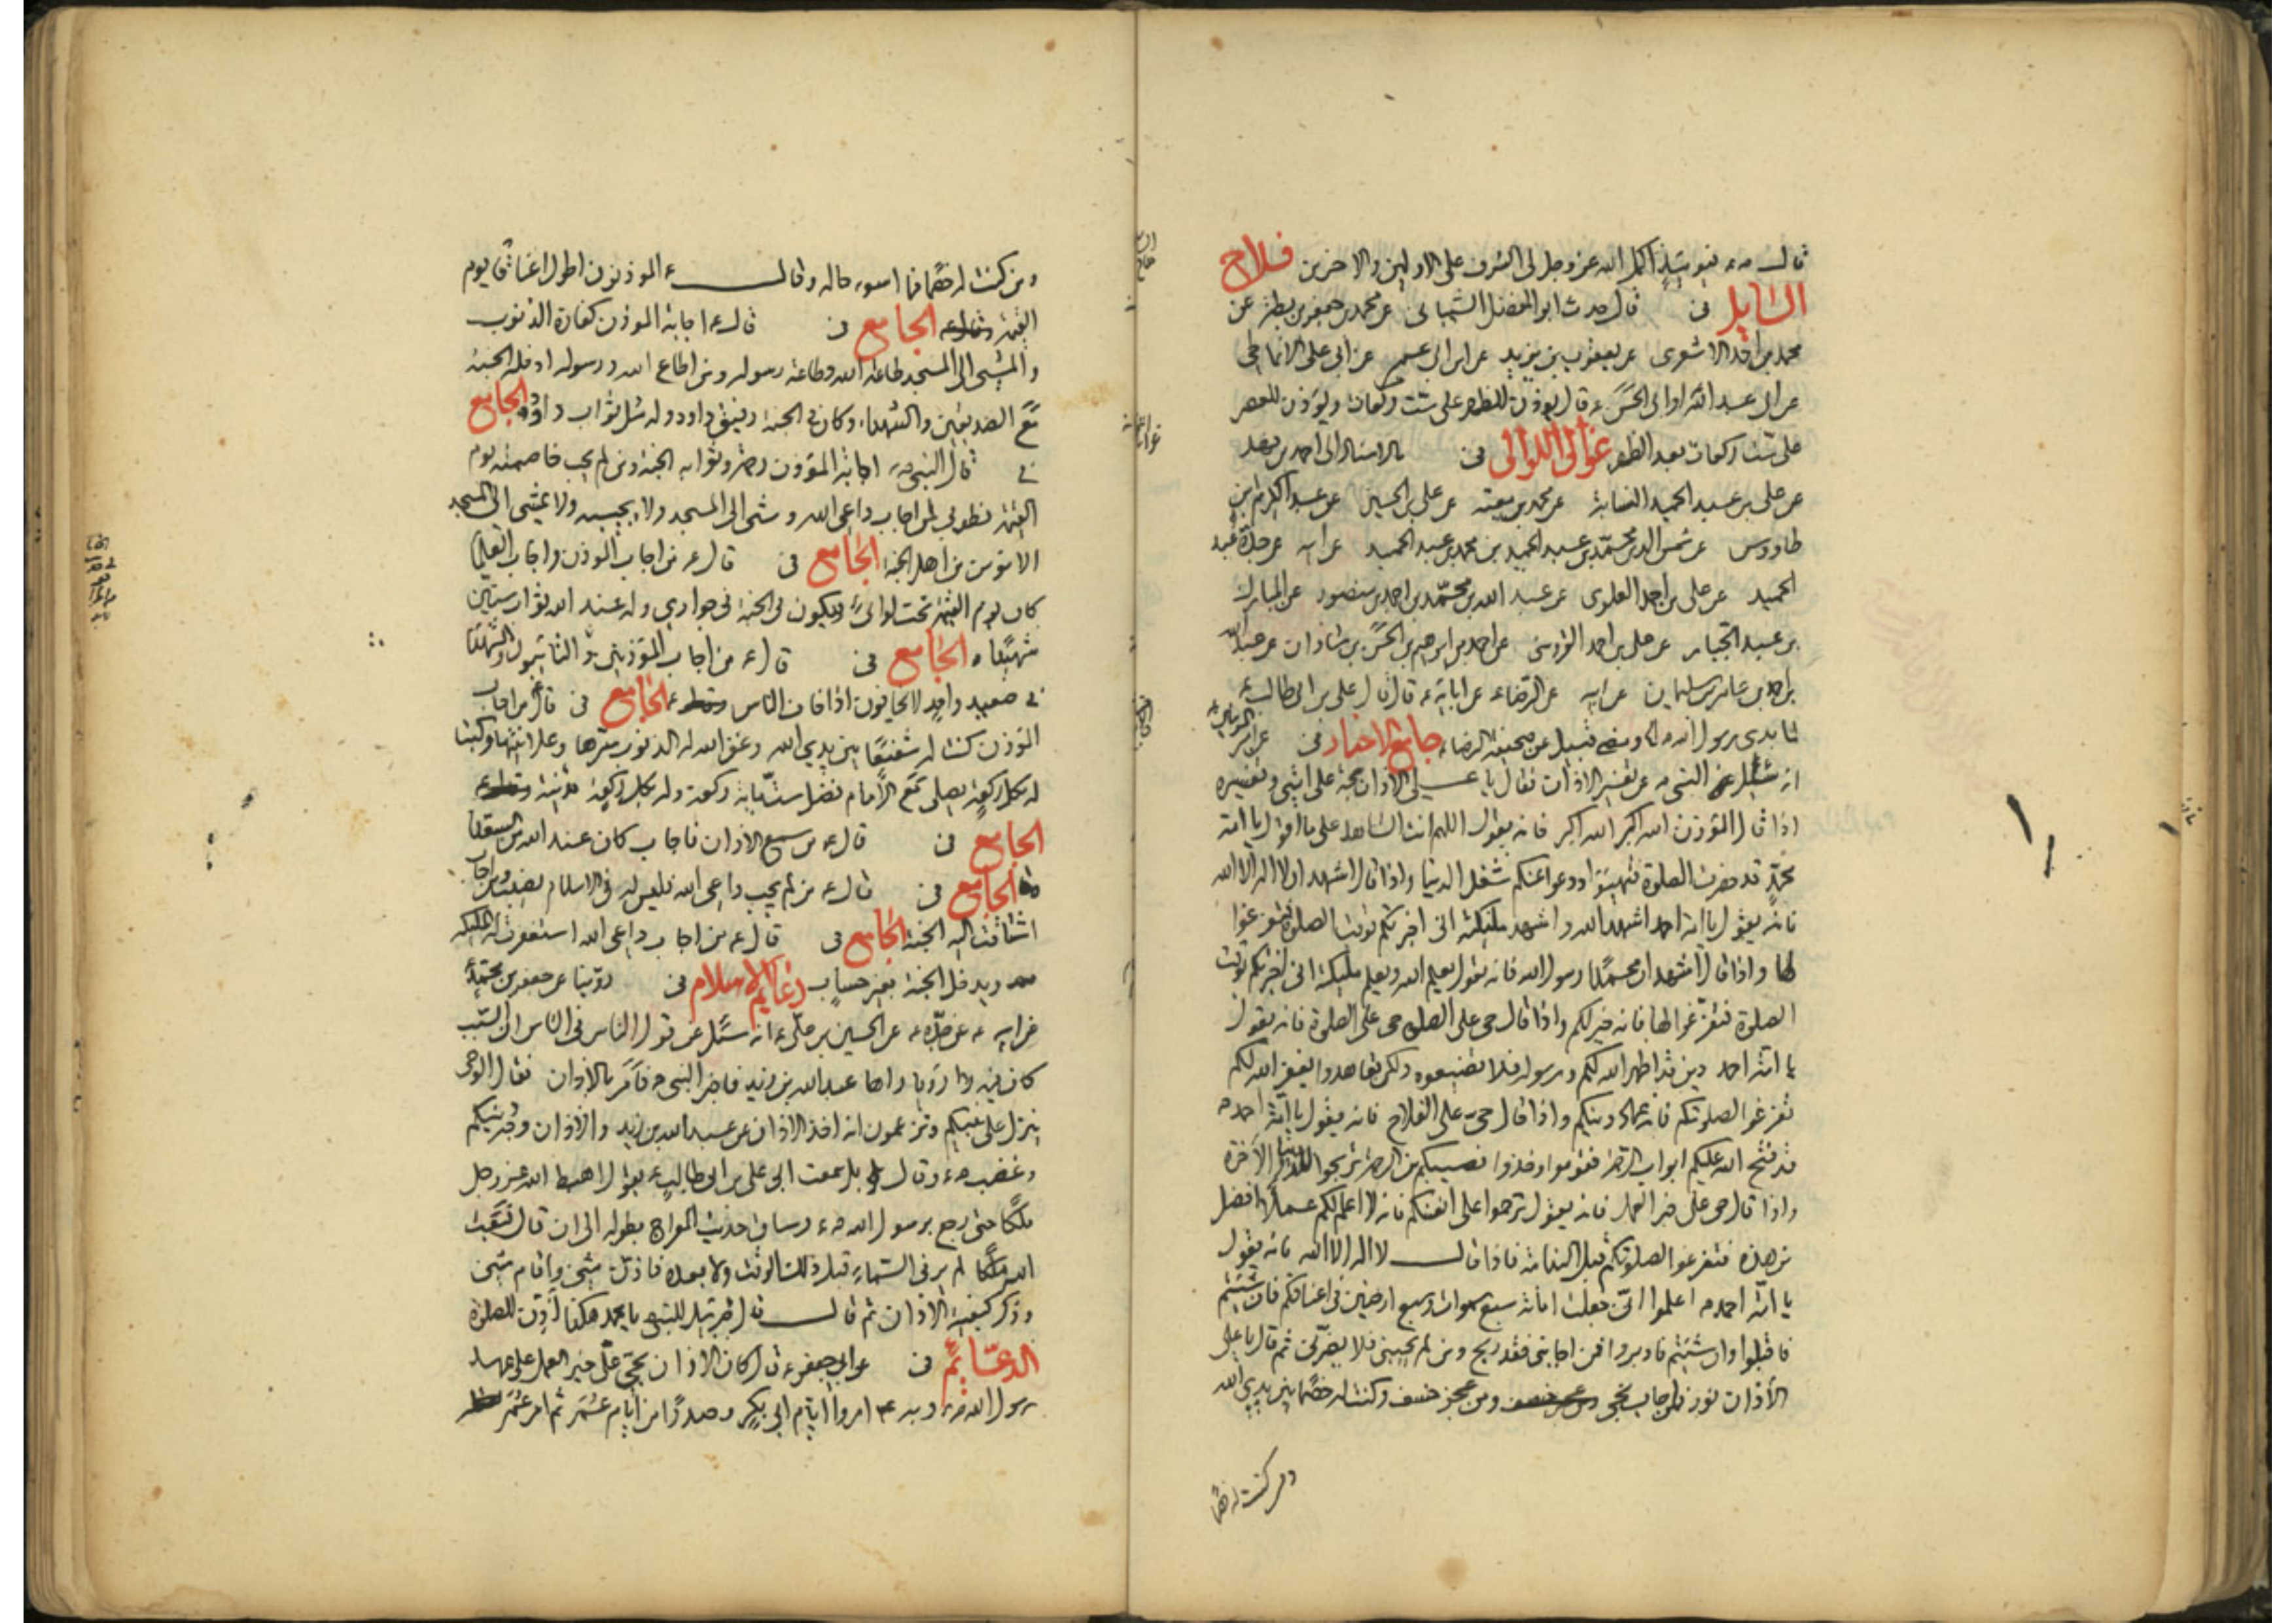 قال ص فيومئذ اكمل الله عز وجل لى الشرف على الاولين والاخرين فلاح
السايل فى قال حدث ابو المفضل الشيبانى عن محمد بن جعفر بن بطة عن
محمد بن احمد الاشعرى عن يعقوب بن يزيد عن ابن ابى عمير عن ابى على الانماطى
عن ابى عبد الله او ابى الحسن ع قال يوذن للظهر على ست ركعات ويوذن للعصر
على ست ركعات بعد الظهر غوالى اللوالى فى بالاسناد الى احمد بن فهد
عن على بن عبد الحميد النسابة عن محمد بن معية عن على بن الحسين عن عبد الكريم بن
طاووس عن شمس الدين محمد بن عبد الحميد بن محمد بن عبد الحميد عن ابيه عن جده عبد
الحميد عن على بن احمد العلوى عن عبد الله بن محمد بن احمد بن منصور عن المبارك
بن عبد الجبار عن على بن احمد عن احمد بن ابرهيم بن الحسن بن شاذان عن عبد الله
بن احمد بن عامر بن سليمان عن ابيه عن الرضاء عن ابائه ع قال قال على بن ابى طالب ع
لما بدى رسول الله عن صحيفة الرضاء جامع الاخبار فى عن امير المؤمنين ع
انه سئل عن النبى ص عن تفسير الاذان فقال يا على الاذان حجة على امتى وتفسيره
اذا قال المؤذن الله اكبر الله اكبر فانه يقول اللهم انت الشاهد على ما اقول يا امة
محمد قد حضرت الصلوة فتهيئوا ودعوا عنكم شغل الدنيا واذا قال اشهد ان لا اله الا الله
فانه يقول يا امة احمد اشهد الله واشهد ملئكته انى اخبرتكم بوقت الصلوة فتفرغوا
لها واذا قال اشهد ان محمدا رسول الله فانه يقول يعلم الله ويعلم ملئكته انى اخبرتكم بوقت
الصلوة فتفرغوا لها فانه خير لكم واذا قال حى على الصلوة حى على الصلوة فانه يقول
يا امة احمد دين قد اظهر الله لكم ورسوله فلا تضيعوه ولكن تعاهدوا يغفر الله لكم
تفرغوا لصلوتكم فانه عماد دينكم واذا قال حى على الفلاح فانه يقول يا امة احمد ص
قد فتح الله عليكم ابواب الرحمة فقوموا وخذوا نصيبكم من الرحمة تربحوا الاخرة
واذا قال حى على خير العمل فانه يقول ترحموا على انفسكم فانه لا اعلم لكم عملا افضل
من هذه فتفرغوا لصلوتكم قبل الندامة فاذا قال لا اله الا الله فانه يقول
يا امة احمد ص اعلموا انى جعلت امانة سبع سموات وسبع ارضين فى اعناقكم فان شئتم
فاقبلوا وان شئتم فادبروا فمن اجابنى فقد ربح ومن لم يجبنى فلا يضرنى ثم قال يا على
الاذان نور فمن اجاب نجى ومن عجز خسف وكنت له خصما بين يدى الله
ومن كنت له خصما
ومن كنت له خصما فما اسوء حاله وقال ع الموذنون اطول اعناقا يوم
القيمة الجامع فى قال ع اجابة الموذن كفارة الذنوب
والمشى الى المسجد طاعة الله وطاعة رسوله ومن اطاع الله ورسوله ادخله الجنة
مع الصديقين والشهداء وكان فى الجنة رفيق داود وله مثل ثواب داود الجامع
فى قال النبى ص اجابة المؤذن رحمة وثوابه الجنة ومن لم يجب خاصمته يوم
القيمة فطوبى لمن اجاب داعى الله ومشى الى المسجد ولا يجيبه ولا يمشى الى المسجد
الا مومن من اهل الجنة الجامع فى قال ع من اجاب الموذن واجاب العلما
كان يوم القيمة تحت لوائى ويكون فى الجنة فى جوارى وله عند الله ثواب ستين
شهيدا الجامع فى قال ع من اجاب المؤذن والتائبون والشهداء
فى صعيد واحد لا يخافون اذا خاف الناس الجامع فى قال ع من اجاب
المؤذن كنت له شفيعا بين يدى الله وغفر الله له الذنوب سرها وعلانيتها وكتب
له بكل ركعة يصلى مع الامام فضل ستماية ركعة وله بكل ركعة مدينة
الجامع فى قال ع من سمع الاذان فاجاب كان عند الله من السعداء
الجامع فى قال ع من لم يجب داعى الله فليس له فى الاسلام نصيب ومن اجاب
اشتاقت اليه الجنة الجامع فى قال ع من اجاب داعى الله استغفرت له الملئكة
ويدخل الجنة بغير حساب دعايم الاسلام فى روينا عن جعفر بن محمد
عن ابيه ع عن جده ع عن الحسين بن على ع انه سئل عن قول الناس فى الاذان ان السبب
كان فيه رؤيا راها عبد الله بن زيد فاخبر النبى ص فامر بالاذان فقال الوحى
ينزل على نبيكم وتزعمون انه اخذ الاذان عن عبد الله بن زيد والاذان وجه دينكم
وغضب ع وقال بل سمعت ابى على بن ابى طالب ع يقول اهبط الله عز وجل
ملكا حتى عرج برسول الله ص وساق حديث المعراج بطوله الى ان قال فبعث
الله ملكا لم ير فى السماء قبل ذلك الوقت ولا بعده فاذن مثنى واقام مثنى
وذكر كيفية الاذان ثم قال قال جبرئيل للنبى يا محمد هكذا اذن للصلوة
الدعائم فى عن ابى جعفر ع قال كان الاذان بحى على خير العمل على عهد
رسول الله ص وبه امروا ايام ابى بكر وصدرا من ايام عمر ثم امر عمر